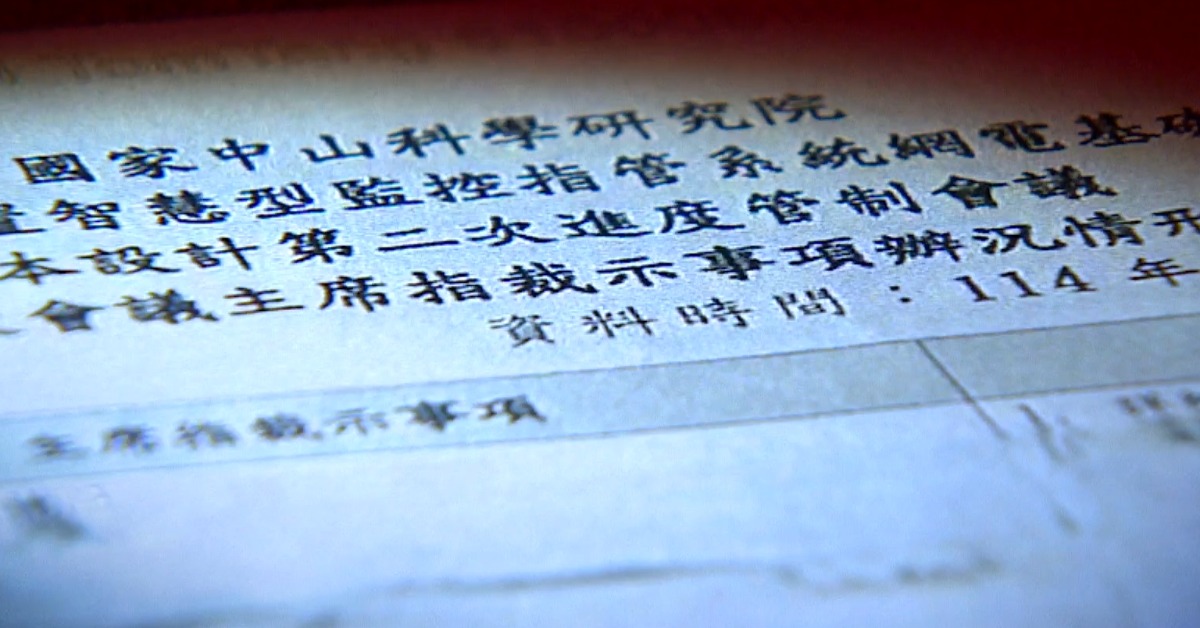 國家中山科學研究院
智慧型監控指管系統網電基礎
本設計第二次進度管制會議
會議主席指裁示事項辦況情形
資料時間：114 年
主席指裁示事項